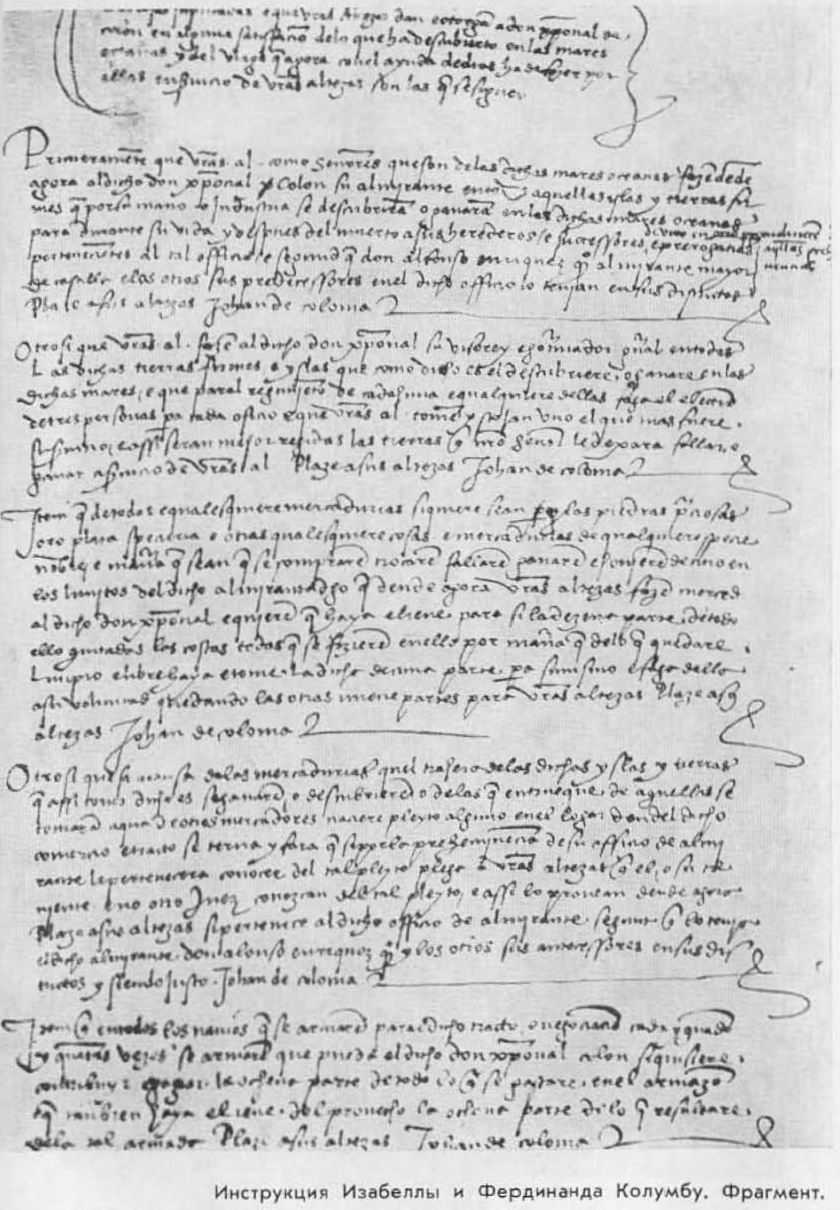 suplicadas e que vras altezas dan e otorgan a don xpoual de
colon en alguna satisfacion delo que ha descubierto en las mares
oceanas y del viage que agora con el ayuda de dios ha de fazer por
ellas en seruicio de vras altezas son las que se siguen
Primeramente que vras al. como Sennores que son delas dichas mares oceanas fazen dende
agora al dicho don xpoual Colon su almirante en todas aquellas islas y tierras fir
mes que por su mano o industria se descubriran o ganaran en las dichas mares oceanas
para durante su vida y despues del muerto a sus herederos e successores
e prerogatiuas
pertenecientes al tal officio e segund que don alfonso enrriquez almirante mayor
de castilla e los otros sus predecessores en el dicho officio lo tenian en sus districtos
Plaze a sus altezas Johan de coloma
Otrosi que vras al. fazen al dicho don xpoual su visorey e gouernador general en todas
Las dichas tierras firmes e yslas que como dicho es el descubriere o ganare en las
dichas mares, e que paral regimiento de cada huna e qualquiere dellas faga el eleccion
de tres personas pa cada oficio e que vras al. tomen y scojan uno el que mas fuere
su seruicio e assi seran mejor regidas las tierras que nro Señor le dexara fallar e
ganar a seruicio de vras al Plaze a sus altezas Johan de coloma
Item que de todas e qualesquiere mercadurias siquiere sean perlas piedras preciosas
oro plata speciaria e otras qualesquiere cosas e mercadurias de qualquiere specie
nombre e manera que sean que se compraren trocaren fallaren ganaren e houieren dentro en
los limites del dicho almirantadgo que dende agora vras altezas fazen merced
al dicho don xpoual e quieren que haya e lieue para si la dezena parte de todo
ello quitadas las costas todas que se fizieren en ello por manera que delo que quedare
limpio e libre haya e tome la dicha decima parte pa si mismo e faga dello
a su voluntad quedando las otras nueue partes para vras altezas Plaze a sus
altezas Johan de coloma
Otrosi que si a causa delas mercadurias quel trahera de las dichas yslas y tierras
que assi como dicho es se ganaren o descubrieren o delas que en trueque de aquellas se
tomaran aqua de otros mercadores naciere pleyto alguno en el logar don del dicho
comercio e tracto se terna y fara que si por la preheminencia de su officio de almi
rante le pertenecera conocer del tal pleyto plega a vras altezas que el o su te
niente e no otro Juez conozcan del tal pleyto e assi lo prouean dende agora
Plaze a sus altezas si pertenece al dicho officio de almirante segunt que lo tenia
el dicho almirante don alonso enrriquez y los otros sus antecessores en sus dis
trictos y siendo justo. Johan de coloma
Item que en todos los nauios que se armaren para el dicho tracto e negociacion cada y quando
y quantas vezes se armaren que pueda el dicho don xpoual colon si quisiere
contribuyr e pagar la ochena parte de todo lo que se gastare en el armazon
e que tanbien haya e lieue del prouecho la ochena parte delo que resultare
dela tal armada Plaze a sus altezas Johan de coloma
Инструкция Изабеллы и Фердинанда Колумбу. Фрагмент.